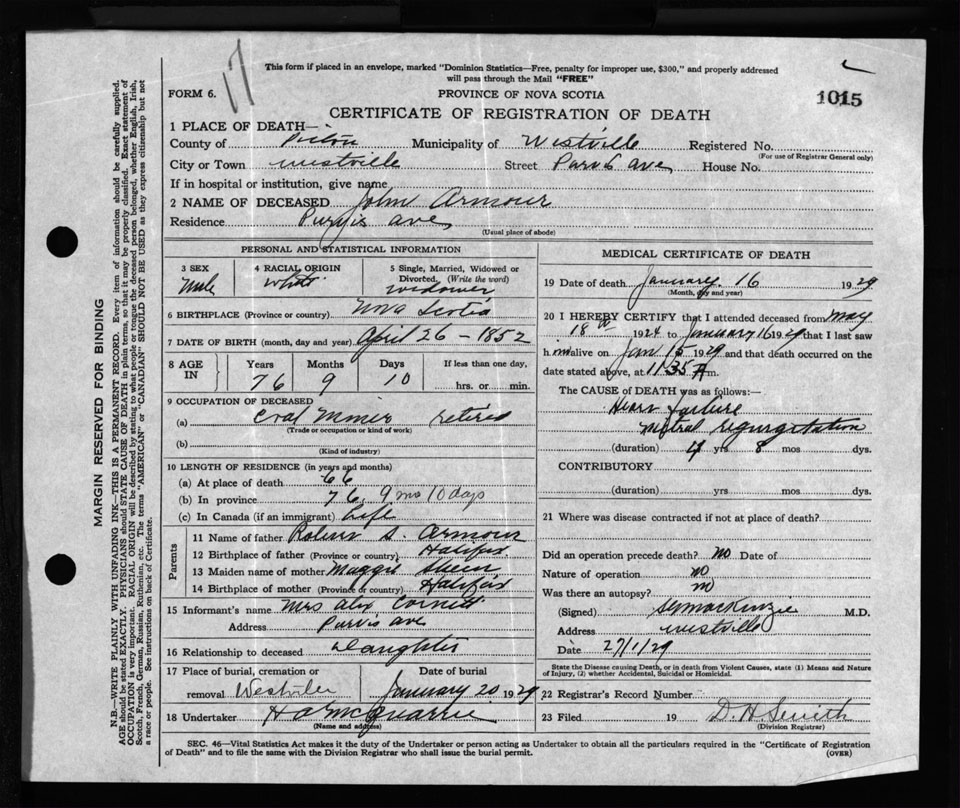 17
This form if placed in an envelope, marked "Dominion Statistics—Free, penalty for improper use, $300," and properly addressed
will pass through the Mail "FREE"
FORM 6.
PROVINCE OF NOVA SCOTIA
1015
CERTIFICATE OF REGISTRATION OF DEATH
1 PLACE OF DEATH—
County of Pictou Municipality of Westville Registered No.
(For use of Registrar General only)
City or Town Westville Street Purvis ave House No.
If in hospital or institution, give name
2 NAME OF DECEASED John Armour
Residence Purvis ave
(Usual place of abode)
PERSONAL AND STATISTICAL INFORMATION
3 SEX 4 RACIAL ORIGIN 5 Single, Married, Widowed or
Divorced. (Write the word)
Male White widower
6 BIRTHPLACE (Province or country) Nova Scotia
7 DATE OF BIRTH (month, day and year) April 26 - 1852
8 AGE IN Years Months Days If less than one day,
76 9 10 hrs. or min.
9 OCCUPATION OF DECEASED
(a) Coal Miner retired
(Trade or occupation or kind of work)
(b)
(Kind of industry)
10 LENGTH OF RESIDENCE (in years and months)
(a) At place of death 66
(b) In province 76, 9 mo 10 days
(c) In Canada (if an immigrant) Life
Parents
11 Name of father Robert S. Armour
12 Birthplace of father (Province or country) Halifax
13 Maiden name of mother Maggie
14 Birthplace of mother (Province or country) Halifax
15 Informant's name Mrs Alex
Address Purvis ave
16 Relationship to deceased Daughter
17 Place of burial, cremation or Date of burial
removal Westville January 20 1929
18 Undertaker McQuarrie
(Name and address)
MEDICAL CERTIFICATE OF DEATH
19 Date of death January 16 1929
(Month, day and year)
20 I HEREBY CERTIFY that I attended deceased from May
18th 1924 to January 16 1929 that I last saw
him alive on Jan 15 1929 and that death occurred on the
date stated above, at 11.35 A m.
The CAUSE OF DEATH was as follows:
Heart failure
Mitral regurgitation
(duration) 4 yrs 8 mos dys.
CONTRIBUTORY
(duration) yrs mos dys.
21 Where was disease contracted if not at place of death?
Did an operation precede death? no Date of
Nature of operation no
Was there an autopsy? no
(Signed) MacKenzie M.D.
Address Westville
Date 27/1/29
State the Disease causing Death, or in death from Violent Causes, state (1) Means and Nature
of Injury, (2) whether Accidental, Suicidal or Homicidal.
22 Registrar's Record Number
23 Filed 19 D. H. Smith
(Division Registrar)
SEC. 46—Vital Statistics Act makes it the duty of the Undertaker or person acting as Undertaker to obtain all the particulars required in the "Certificate of Registration
of Death" and to file the same with the Division Registrar who shall issue the burial permit.
(OVER)
MARGIN RESERVED FOR BINDING
N.B.—WRITE PLAINLY WITH UNFADING INK—THIS IS A PERMANENT RECORD. Every item of information should be carefully supplied.
AGE should be stated EXACTLY. PHYSICIANS should STATE CAUSE OF DEATH in plain terms, so that it may be properly classified. Exact statement of
OCCUPATION is very important. RACIAL ORIGIN will be described by stating to what people or tongue the deceased person belonged, whether English, Irish,
Scotch, French, German, Russian, Ruthenian, etc. The terms "AMERICAN" or "CANADIAN" SHOULD NOT BE USED as they express citizenship but not
a race or people. See instructions on back of Certificate.